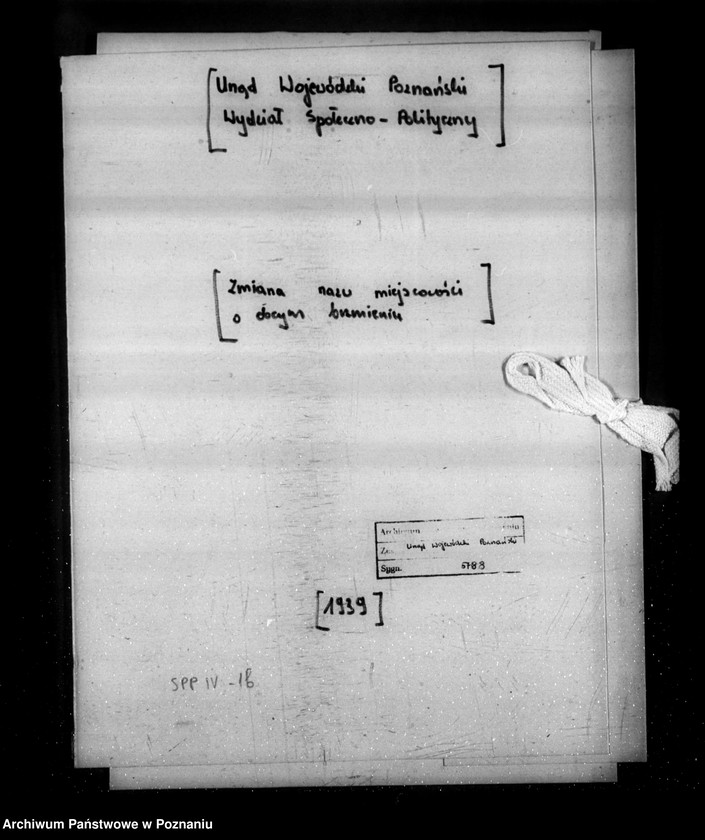 [Urząd Wojewódzki Poznański
Wydział Społeczno-Polityczny]
[Zmiana nazw miejscowości
o obcym brzmieniu]
Archiwum
Urząd Wojewódzki Poznański
Sygn. 5788
[1939]
SPP IV - 1b
Archiwum Państwowe w Poznaniu